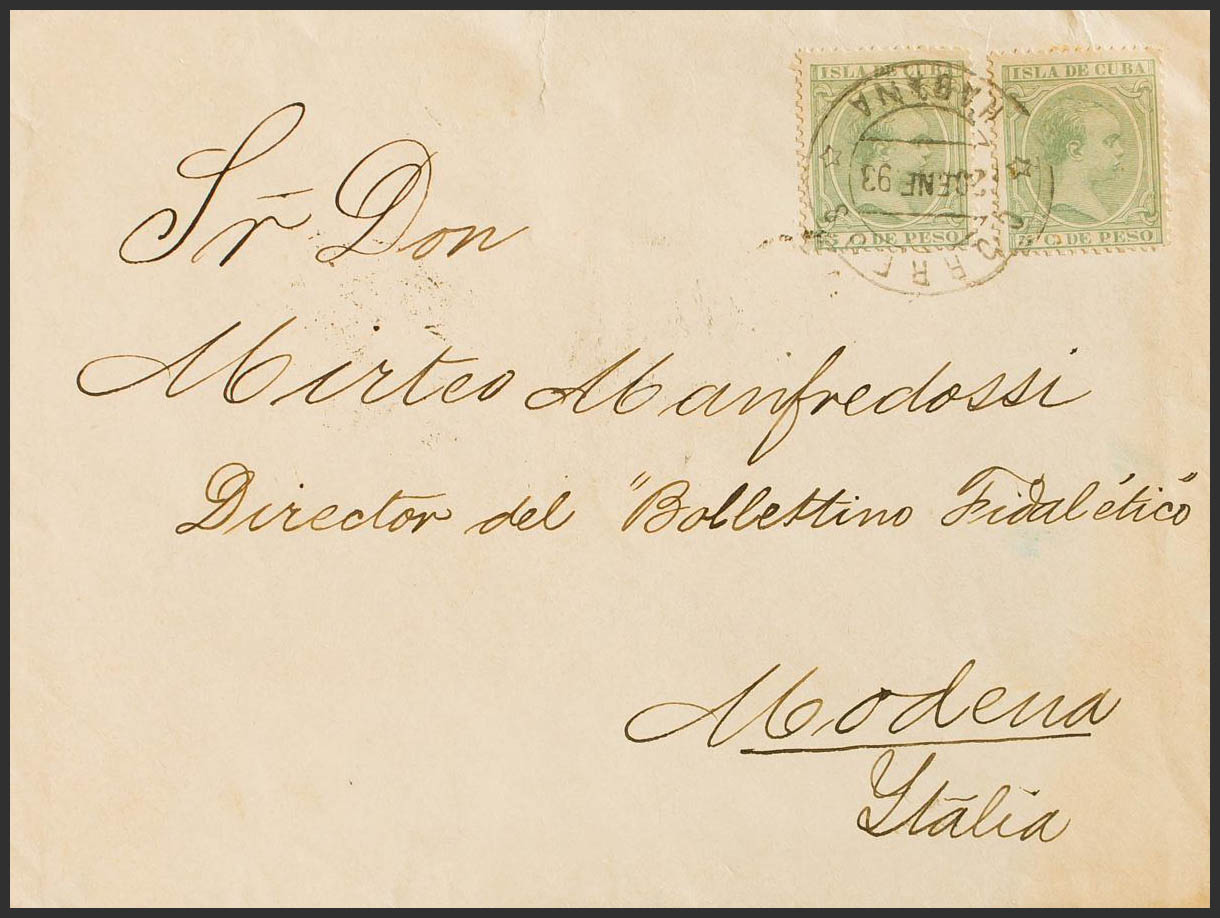 ISLA DE CUBA ISLA DE CUBA
HABANA
20 ENE 93
CORREOS
5 C. DE PESO 5 C. DE PESO
Sr Don
Mirteo Manfredossi
Director del "Bollettino Fidalético"
Modena
Itália